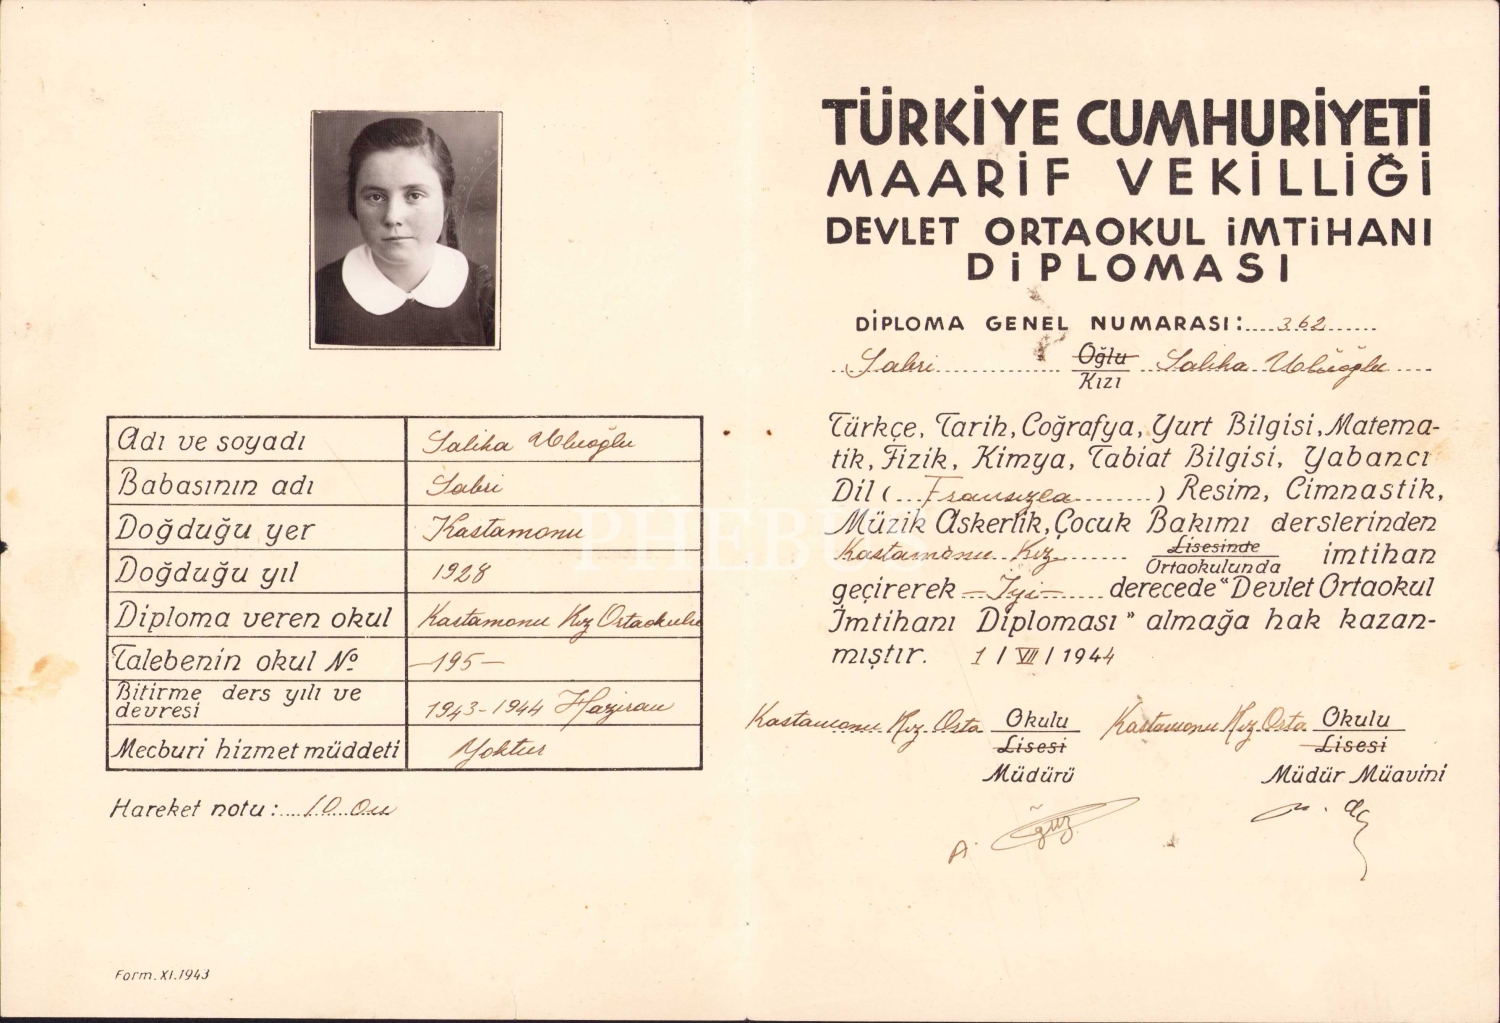 Adı ve soyadı Saliha Uluoğlu
Babasının adı Sabri
Doğduğu yer Kastamonu
Doğduğu yıl 1928
Diploma veren okul Kastamonu Kız Ortaokulu
Talebenin okul No -195-
Bitirme ders yılı ve
devresi 1943-1944 Haziran
Mecburi hizmet müddeti Yoktur
Hareket notu: 10. On
Form. XI.1943
TÜRKİYE CUMHURİYETİ
MAARİF VEKİLLİĞİ
DEVLET ORTAOKUL İMTİHANI
DİPLOMASI
DİPLOMA GENEL NUMARASI: 362
Sabri Oğlu Saliha Uluoğlu
Kızı
Türkçe, Tarih, Coğrafya, Yurt Bilgisi, Matema-
tik, Fizik, Kimya, Tabiat Bilgisi, Yabancı
Dil (Fransızca) Resim, Cimnastik,
Müzik Askerlik, Çocuk Bakımı derslerinden
Kastamonu Kız Lisesinde imtihan
Ortaokulunda
geçirerek -İyi- derecede "Devlet Ortaokul
İmtihanı Diploması" almağa hak kazan-
mıştır. 1 / VII / 1944
Kastamonu Kız Orta Okulu Kastamonu Kız Orta Okulu
Lisesi Lisesi
Müdürü Müdür Müavini
PHEBUS